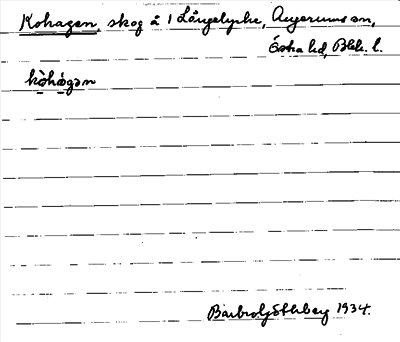 Kohagen, skog å 1 Långelycke, Augerums sn,
Östra hd, Blek. l.
kòhàgən
Barbro Söderberg 1934.